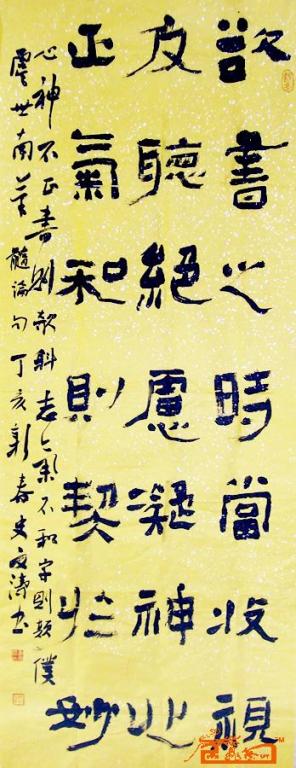 欲書之時當收視
反聽絕慮凝神心
正氣和則契於妙
心神不正書則欹斜志氣不和字則顛僕
虞世南筆髓論句丁亥新春史濤書